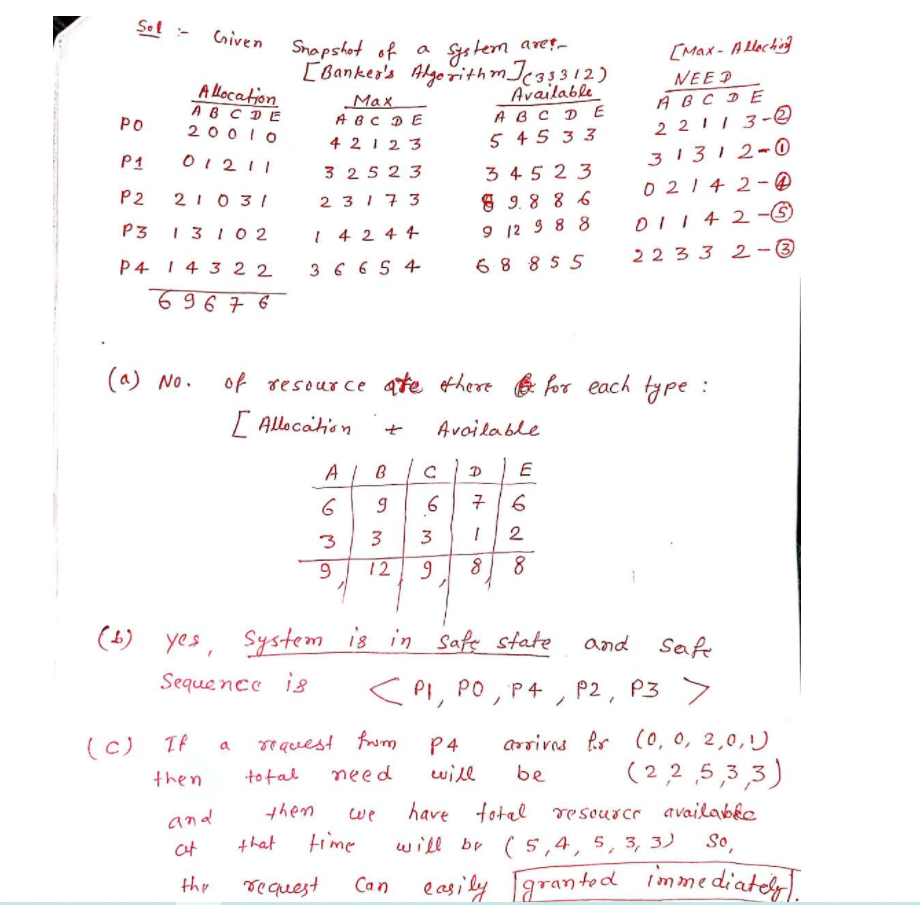 Sol :- Given Snapshot of a System are:-
[Banker's Algorithm] (33312) [Max - Allocation]
Allocation Max Available NEED
A B C D E A B C D E A B C D E A B C D E
P0 2 0 0 1 0 4 2 1 2 3 5 4 5 3 3 2 2 1 1 3 - ②
P1 0 1 2 1 1 3 2 5 2 3 3 4 5 2 3 3 1 3 1 2 - ①
P2 2 1 0 3 1 2 3 1 7 3 8 9 8 8 6 0 2 1 4 2 - ④
P3 1 3 1 0 2 1 4 2 4 4 9 12 9 8 8 0 1 1 4 2 - ⑤
P4 1 4 3 2 2 3 6 6 5 4 6 8 8 5 5 2 2 3 3 2 - ③
6 9 6 7 6
(a) No. of resource are there for each type :
[ Allocation + Available
A B C D E
6 9 6 7 6
3 3 3 1 2
9, 12 9, 8, 8
(b) yes, System is in safe state and safe
Sequence is < P1, P0, P4, P2, P3 >
(C) If a request from P4 arrives for (0, 0, 2, 0, 1)
then total need will be (2 2, 5, 3, 3)
and then we have total resource available
at that time will be (5, 4, 5, 3, 3) So,
the request can easily granted immediately.